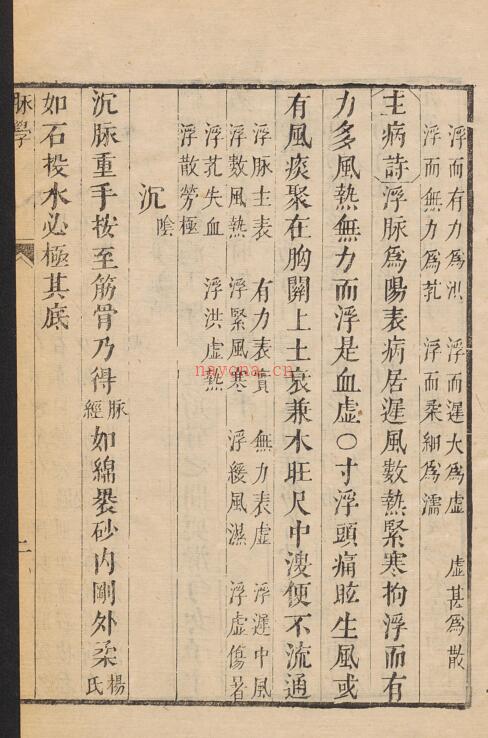 浮而有力爲洪　浮而遲大爲虛　虛甚爲散
浮而無力爲芤　浮而柔細爲濡
主病詩　浮脉爲陽表病居遲風數熱緊寒拘浮而有
力多風熱無力而浮是血虛〇寸浮頭痛眩生風或
有風痰聚在胸關上土衰兼木旺尺中溲便不流通
浮脉主表　有力表實　無力表虛　浮遲中風
浮數風熱　浮緊風寒　浮緩風濕　浮虛傷暑
浮芤失血　浮洪虛熱
浮散勞極
沉陰
沉脉重手按至筋骨乃得脉經如綿裹砂内剛外柔楊氏
如石投水必極其底
脉學
二
nayona.cn